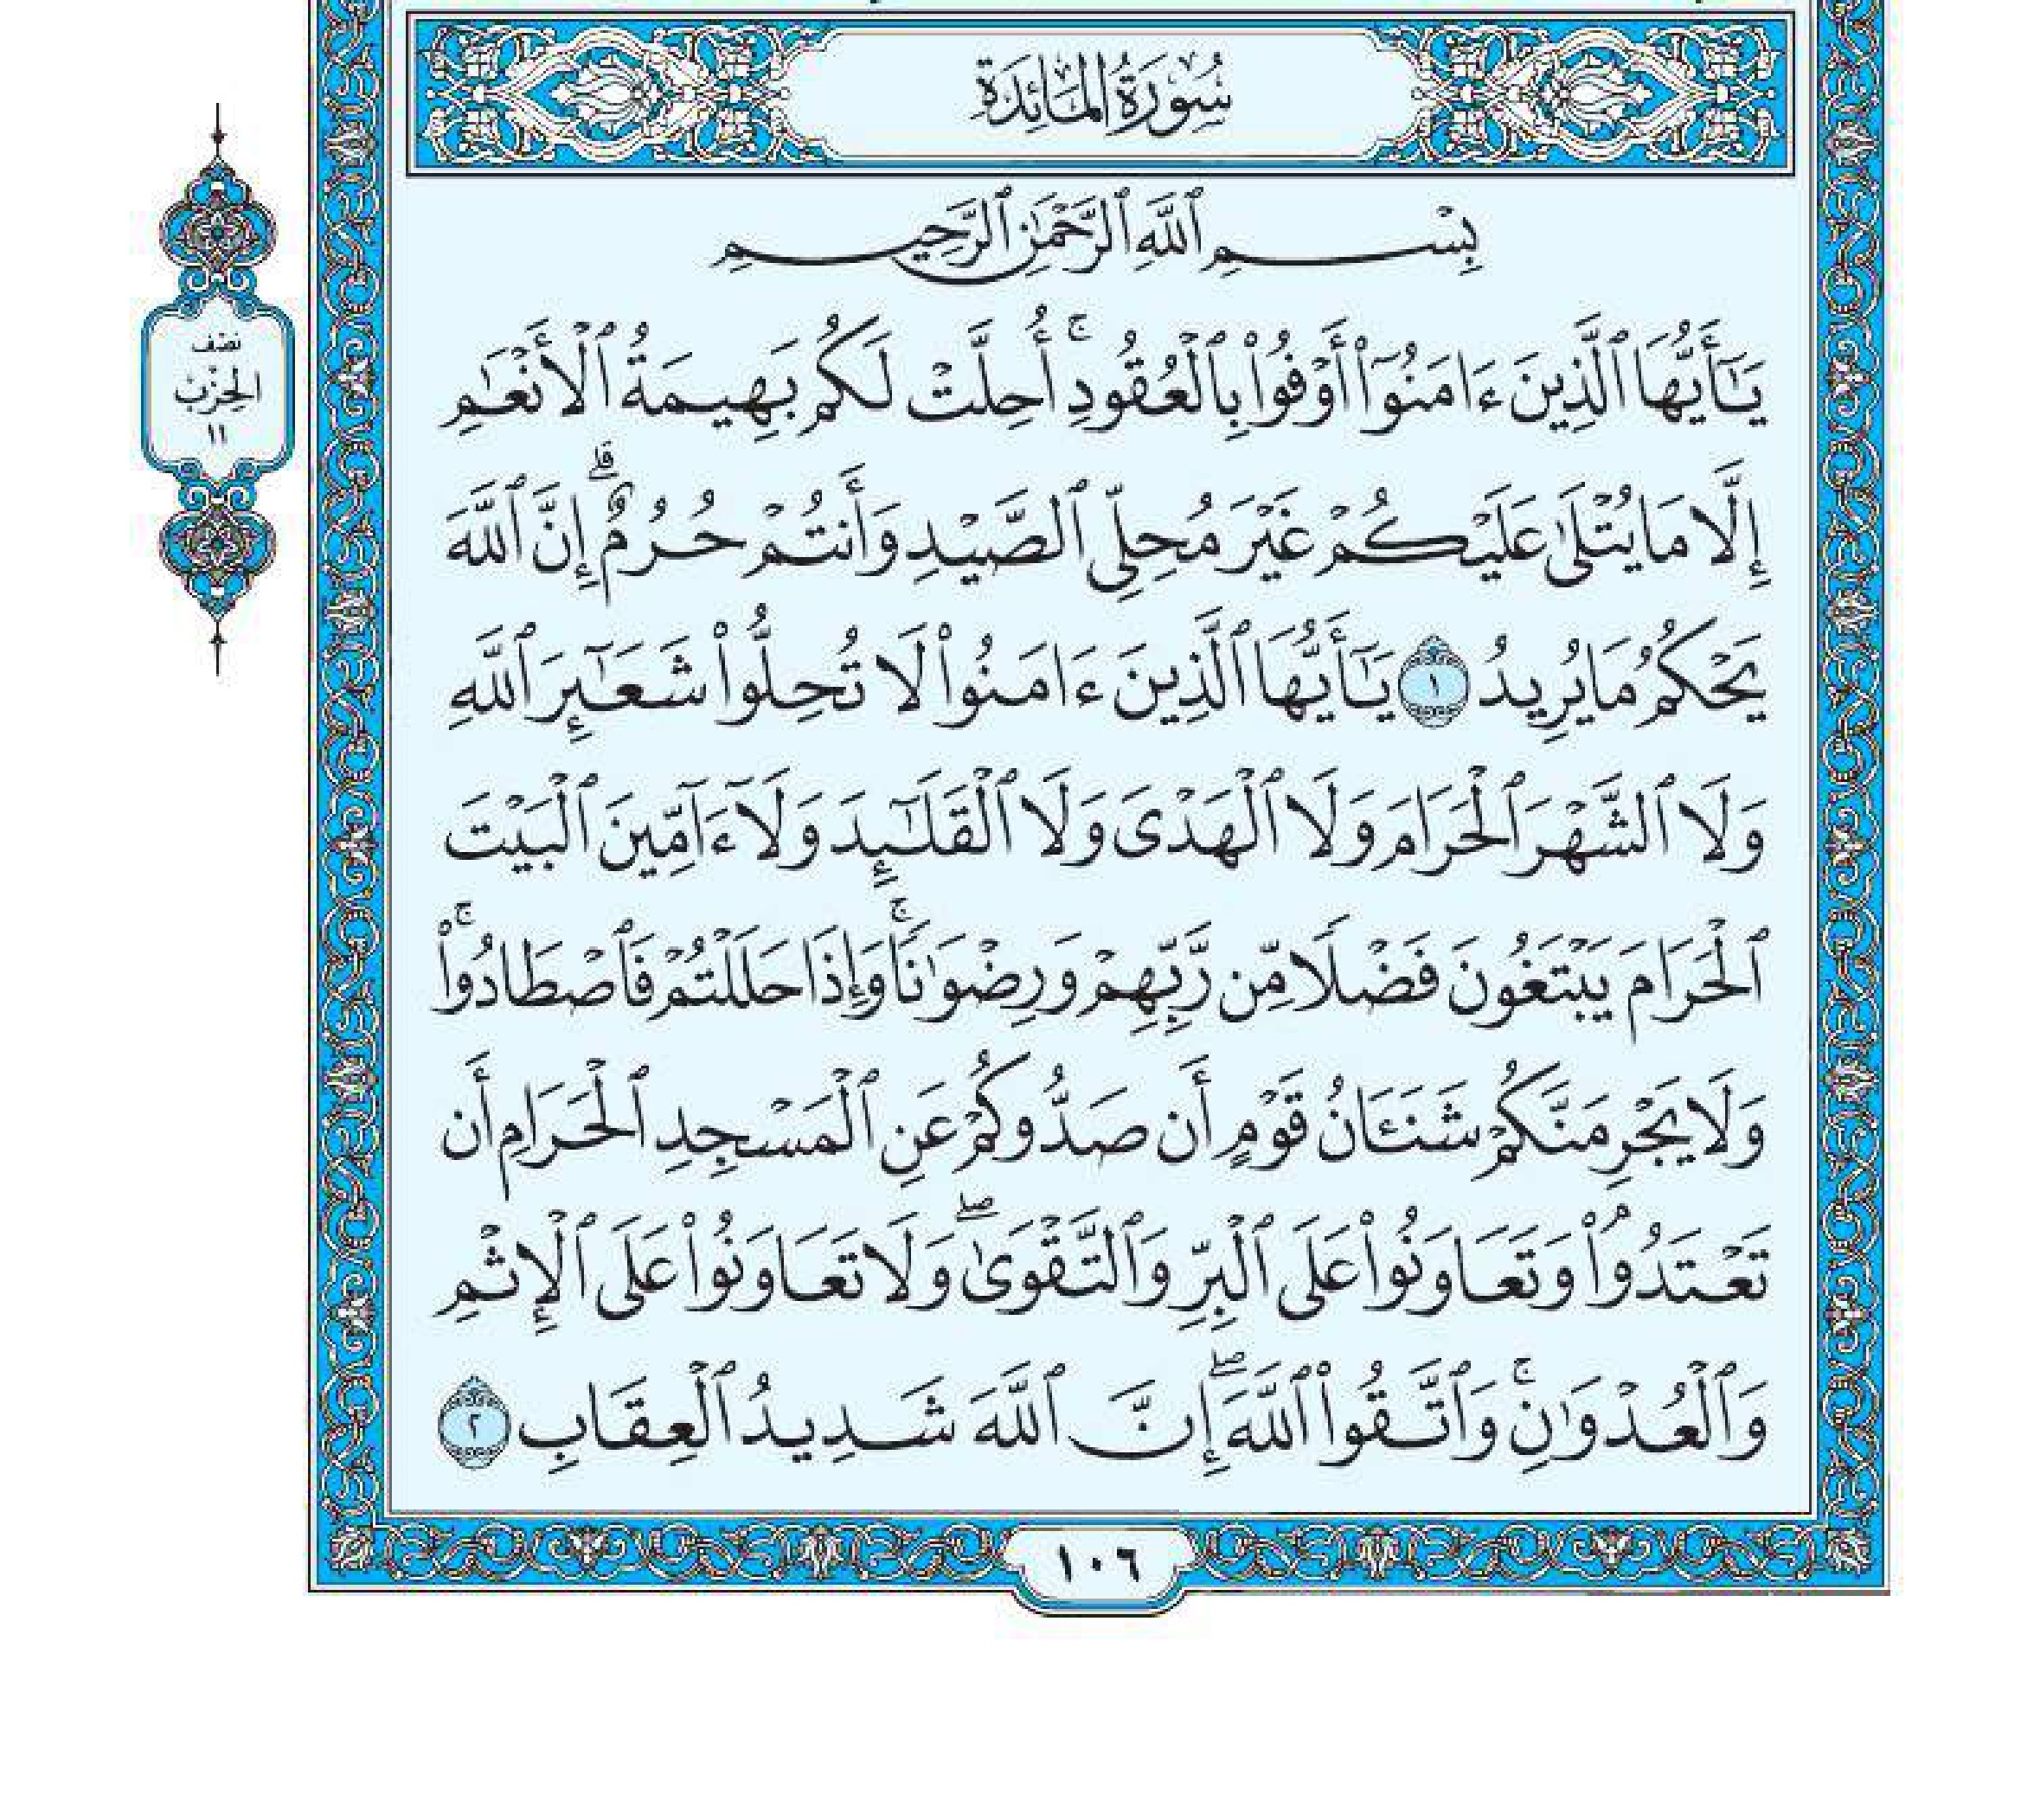 سُورَةُ المَائِدَةِ
بِسْمِ ٱللَّهِ ٱلرَّحْمَٰنِ ٱلرَّحِيمِ
يَٰٓأَيُّهَا ٱلَّذِينَ ءَامَنُوٓا۟ أَوْفُوا۟ بِٱلْعُقُودِۚ أُحِلَّتْ لَكُم بَهِيمَةُ ٱلْأَنْعَٰمِ
إِلَّا مَا يُتْلَىٰ عَلَيْكُمْ غَيْرَ مُحِلِّى ٱلصَّيْدِ وَأَنتُمْ حُرُمٌۗ إِنَّ ٱللَّهَ
يَحْكُمُ مَا يُرِيدُ ١ يَٰٓأَيُّهَا ٱلَّذِينَ ءَامَنُوا۟ لَا تُحِلُّوا۟ شَعَٰٓئِرَ ٱللَّهِ
وَلَا ٱلشَّهْرَ ٱلْحَرَامَ وَلَا ٱلْهَدْىَ وَلَا ٱلْقَلَٰٓئِدَ وَلَآ ءَآمِّينَ ٱلْبَيْتَ
ٱلْحَرَامَ يَبْتَغُونَ فَضْلًا مِّن رَّبِّهِمْ وَرِضْوَٰنًاۚ وَإِذَا حَلَلْتُمْ فَٱصْطَادُوا۟ۚ
وَلَا يَجْرِمَنَّكُمْ شَنَـَٔانُ قَوْمٍ أَن صَدُّوكُمْ عَنِ ٱلْمَسْجِدِ ٱلْحَرَامِ أَن
تَعْتَدُوا۟ۘ وَتَعَاوَنُوا۟ عَلَى ٱلْبِرِّ وَٱلتَّقْوَىٰۖ وَلَا تَعَاوَنُوا۟ عَلَى ٱلْإِثْمِ
وَٱلْعُدْوَٰنِۚ وَٱتَّقُوا۟ ٱللَّهَۖ إِنَّ ٱللَّهَ شَدِيدُ ٱلْعِقَابِ ٢
نصف
الحزب
١١
١٠٦